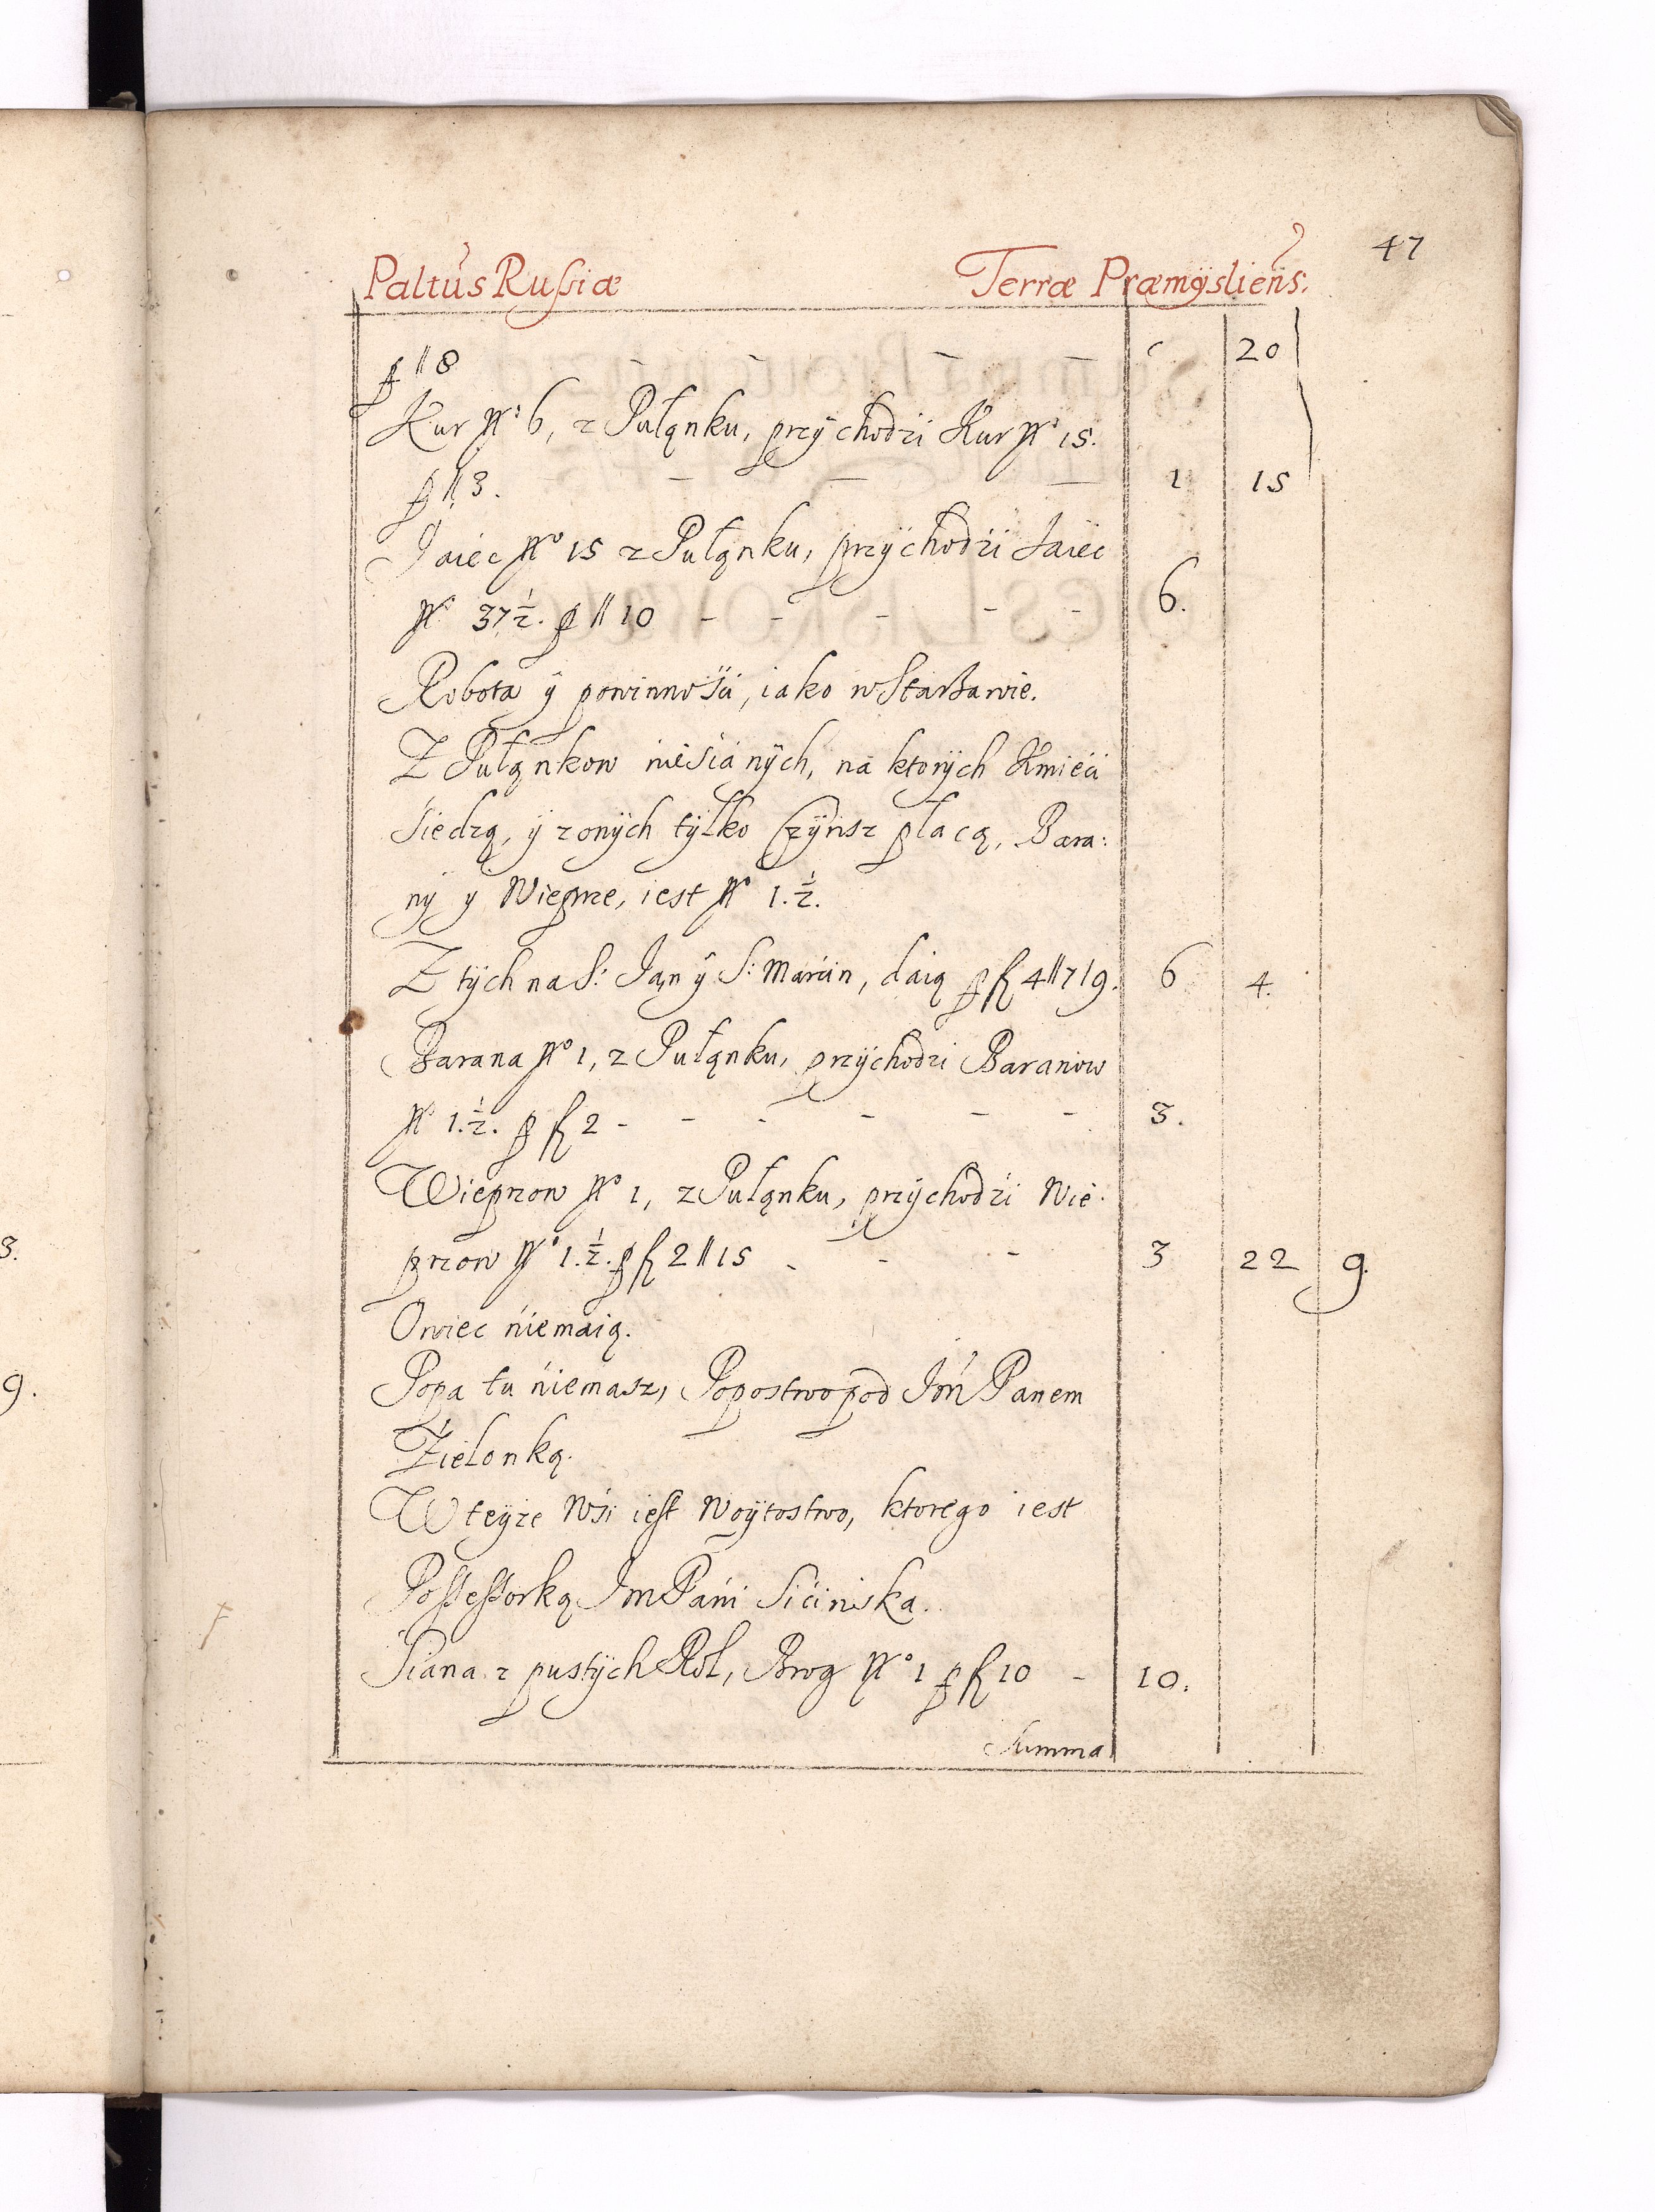 47
Paltus Russiæ Terræ Præmÿsliens.
p 8 - - - - 20
Kur No 6, z Pułąnku, przÿchodzi Kur No 15.
p 3. - - - - 1 15
Jaiec No 15 z Pułąnku, przÿchodźi Jaiec
No 37 1/2. p 10 - - - - - 6.
Robota ÿ powinnośći, iako w Starzawie.
Z Pułąnkow nieśianÿch, na ktorÿch Kmieći
śiedzą, ÿ z onÿch tÿlko Czÿnsz płacą, Bara:
nÿ y Wieprze, iest No 1. 1/2.
Z tÿch na S: Jąn ÿ S: Marćin, daią p fl 4 // 7 / 9. 6 4.
Barana No 1, z Pułąnku, przÿchodzi Baranow
No 1. 1/2. p fl 2 - - - - - - 3.
Wieprzow No 1, z Pułąnku, przÿchodźi Wie:
przow No 1. 1/2. p fl 2 // 15 - - - 3 22 9.
Owiec niemaią.
Popa tu niemasz, Popostwo pod Jm Panem
Zielonką.
W teÿze Wśi iest Woÿtostwo, ktorego iest
Possessorką Jm Pani Sićinska.
Śiana z pustÿch Rol, Brog No 1 p fl 10 - 10.
Summa
3.
9.